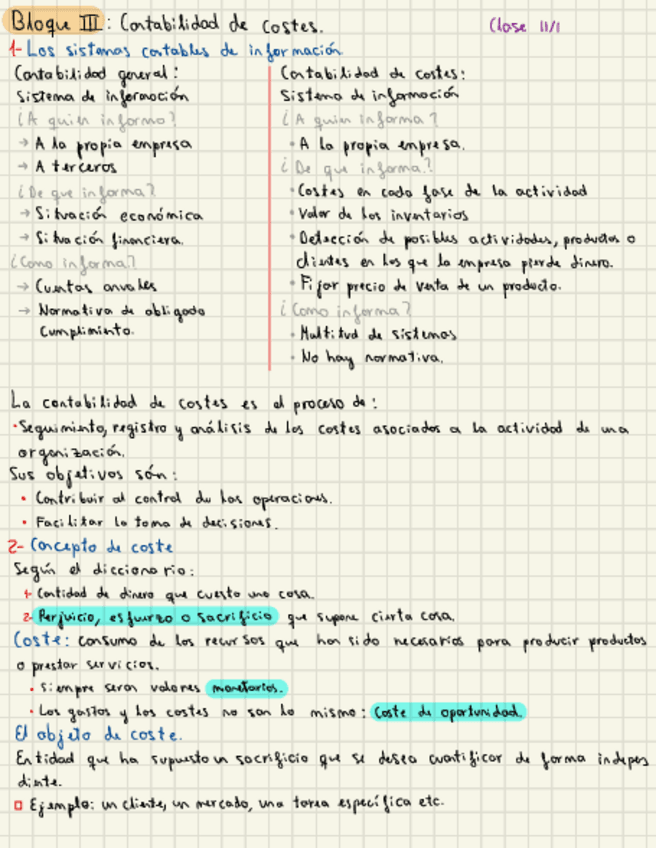 Bloque III: Contabilidad de costes.
Clase 11/1
1- Los sistemas contables de información
Contabilidad general:
Sistema de información
¿A quien informo?
→ A la propia empresa
→ A terceros
¿De que informa?
→ Situación económica
→ Situación financiera.
¿Como informa?
→ Cuentas anuales
→ Normativa de obligado
cumplimiento.
Contabilidad de costes:
Sistema de información
¿A quien informa?
• A la propia empresa.
¿De que informa?
• Costes en cada fase de la actividad
• Valor de los inventarios
• Detección de posibles actividades, productos o
clientes en los que la empresa pierde dinero.
• Fijar precio de venta de un producto.
¿Como informa?
• Multitud de sistemas
• No hay normativa.
La contabilidad de costes es el proceso de:
• Seguimiento, registro y análisis de los costes asociados a la actividad de una
organización.
Sus objetivos són:
• Contribuir al control de las operaciones.
• Facilitar la toma de decisiones.
2- Concepto de coste
Según el diccionario:
1- Cantidad de dinero que cuesta una cosa.
2- Perjuicio, esfuerzo o sacrificio que supone cierta cosa.
Coste: consumo de los recursos que han sido necesarios para producir productos
o prestar servicios.
• Siempre seran valores monetarios.
• Los gastos y los costes no son lo mismo: Coste de oportunidad.
El objeto de coste.
Entidad que ha supuesto un sacrificio que se desea cuantificar de forma indepen
diente.
Ejemplo: un cliente, un mercado, una tarea específica etc.